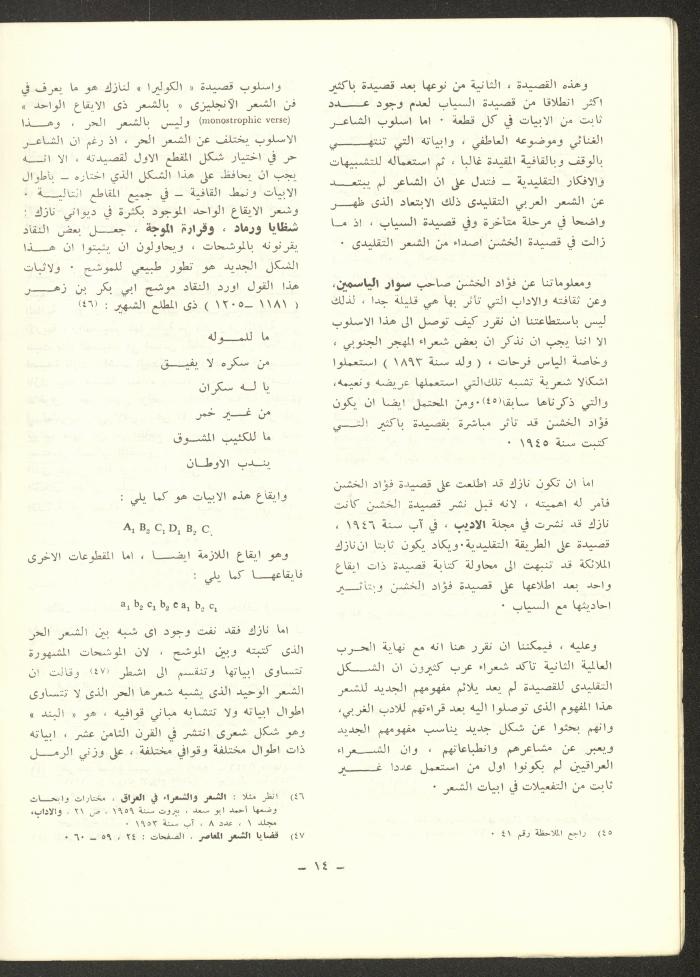 وهذه القصيدة ، الثانية من نوعها بعد قصيدة باكثير
اكثر انطلاقا من قصيدة السياب لعدم وجود عـــدد
ثابت من الابيات في كل قطعة ٠ اما اسلوب الشاعــر
الغنائي وموضوعه العاطفي ، وابياته التي تنتهـــي
بالوقف وبالقافية المقيدة غالبا ، ثم استعماله للتشبيهات
والافكار التقليدية ــ فتدل على ان الشاعر لم يبتعــد
عن الشعر العربي التقليدى ذلك الابتعاد الذى ظهــر
واضحا في مرحلة متأخرة وفي قصيدة السياب ، اذ مـا
زالت في قصيدة الخشن اصداء من الشعر التقليدى ٠
ومعلوماتنا عن فؤاد الخشن صاحب سوار الياسمين،
وعن ثقافته والاداب التي تأثر بها هي قليلة جدا ، لذلك
ليس باستطاعتنا ان نقرر كيف توصل الى هذا الاسلوب
الا اننا يجب ان نذكر ان بعض شعراء المهجر الجنوبي ،
وخاصة الياس فرحات ، ( ولد سنة ١٨٩٣ ) استعملوا
اشكالا شعرية تشبه تلك التي استعملها عريضه ونعيمه،
والتي ذكرناها سابقا(٤٥)٠ ومن المحتمل ايضا ان يكون
فؤاد الخشن قد تأثر مباشرة بقصيدة باكثير التـــي
كتبت سنة ١٩٤٥ ٠
اما ان تكون نازك قد اطلعت على قصيدة فؤاد الخشن
فأمر له اهميته ، لانه قبل نشر قصيدة الخشن كانت
نازك قد نشرت في مجلة الاديب ، في آب سنة ١٩٤٦ ،
قصيدة على الطريقة التقليدية٠ ويكاد يكون ثابتا ان نازك
الملائكة قد تنبهت الى محاولة كتابة قصيدة ذات ايقاع
واحد بعد اطلاعها على قصيدة فؤاد الخشن وبتأثــير
احاديثها مع السياب ٠
وعليه ، فيمكننا ان نقرر هنا انه مع نهاية الحرب
العالمية الثانية تأكد شعراء عرب كثيرون ان الشــكل
التقليدى للقصيدة لم يعد يلائم مفهومهم الجديد للشعر
هذا المفهوم الذى توصلوا اليه بعد قراءتهم للادب الغربي،
وانهم بحثوا عن شكل جديد يناسب مفهومهم الجديد
ويعبر عن مشاعرهم وانطباعاتهم ، وان الشــعراء
العراقيين لم يكونوا اول من استعمل عددا غـــير
ثابت من التفعيلات في ابيات الشعر ٠
٤٥) راجع الملاحظة رقم ٤١ ٠
واسلوب قصيدة « الكوليرا » لنازك هو ما يعرف في
فن الشعر الانجليزى « بالشعر ذى الايقاع الواحد »
(monostrophic verse) وليس بالشعر الحر ، وهــذا
الاسلوب يختلف عن الشعر الحر ، اذ رغم ان الشاعــر
حر في اختيار شكل المقطع الاول لقصيدته ، الا انــه
يجب ان يحافظ على هذا الشكل الذي اختاره ــ باطوال
الابيات ونمط القافية ــ في جميع المقاطع التاليــة ٠
وشعر الايقاع الواحد الموجود بكثرة في ديواني نازك :
شظايا ورماد ، وقرارة الموجة ، جعــل بعض النقاد
يقرنونه بالموشحات ، ويحاولون ان يثبتوا ان هــذا
الشكل الجديد هو تطور طبيعي للموشح ٠ ولاثبات
هذا القول اورد النقاد موشح ابي بكر بن زهـــر
( ١١٨١ ــ ١٢٠٥ ) ذى المطلع الشهير : (٤٦)
ما للمـــوله
من سكره لا يفيــق
يا لــه سكران
من غـــير خمر
ما للكئيب المشــوق
ينــدب الاوطــان
وايقاع هذه الابيات هو كما يلي :
A₁ B₂ C₁ D₁ B₂ C₁
وهو ايقاع اللازمة ايضــا ، اما المقطوعات الاخرى
فايقاعهــا كما يلي :
a₁ b₂ c₁ b₂ e a₁ b₂ c₁
اما نازك فقد نفت وجود اى شبه بين الشعر الحر
الذى كتبته وبين الموشح ، لان الموشحات المشهورة
تتساوى ابياتها وتنقسم الى اشطر (٤٧) وقالت ان
الشعر الوحيد الذى يشبه شعرها الحر الذى لا تتساوى
اطوال ابياته ولا تتشابه مباني قوافيه ، هو « البند »
وهو شكل شعرى انتشر في القرن الثامن عشر ، ابياته
ذات اطوال مختلفة وقوافي مختلفة ، على وزني الرمــل
٤٦) انظر مثلا : الشعر والشعراء في العراق ، مختارات وابحــاث
وضعها أحمد ابو سعد ، بيروت سنة ١٩٥٩ ، ص ٢١ ، والاداب،
مجلد ١ ، عدد ٨ ، آب سنة ١٩٥٣ ٠
٤٧) قضايا الشعر المعاصر ، الصفحات : ٢٤ ، ٥٩ ــ ٦٠ ٠
ــ ١٤ ــ